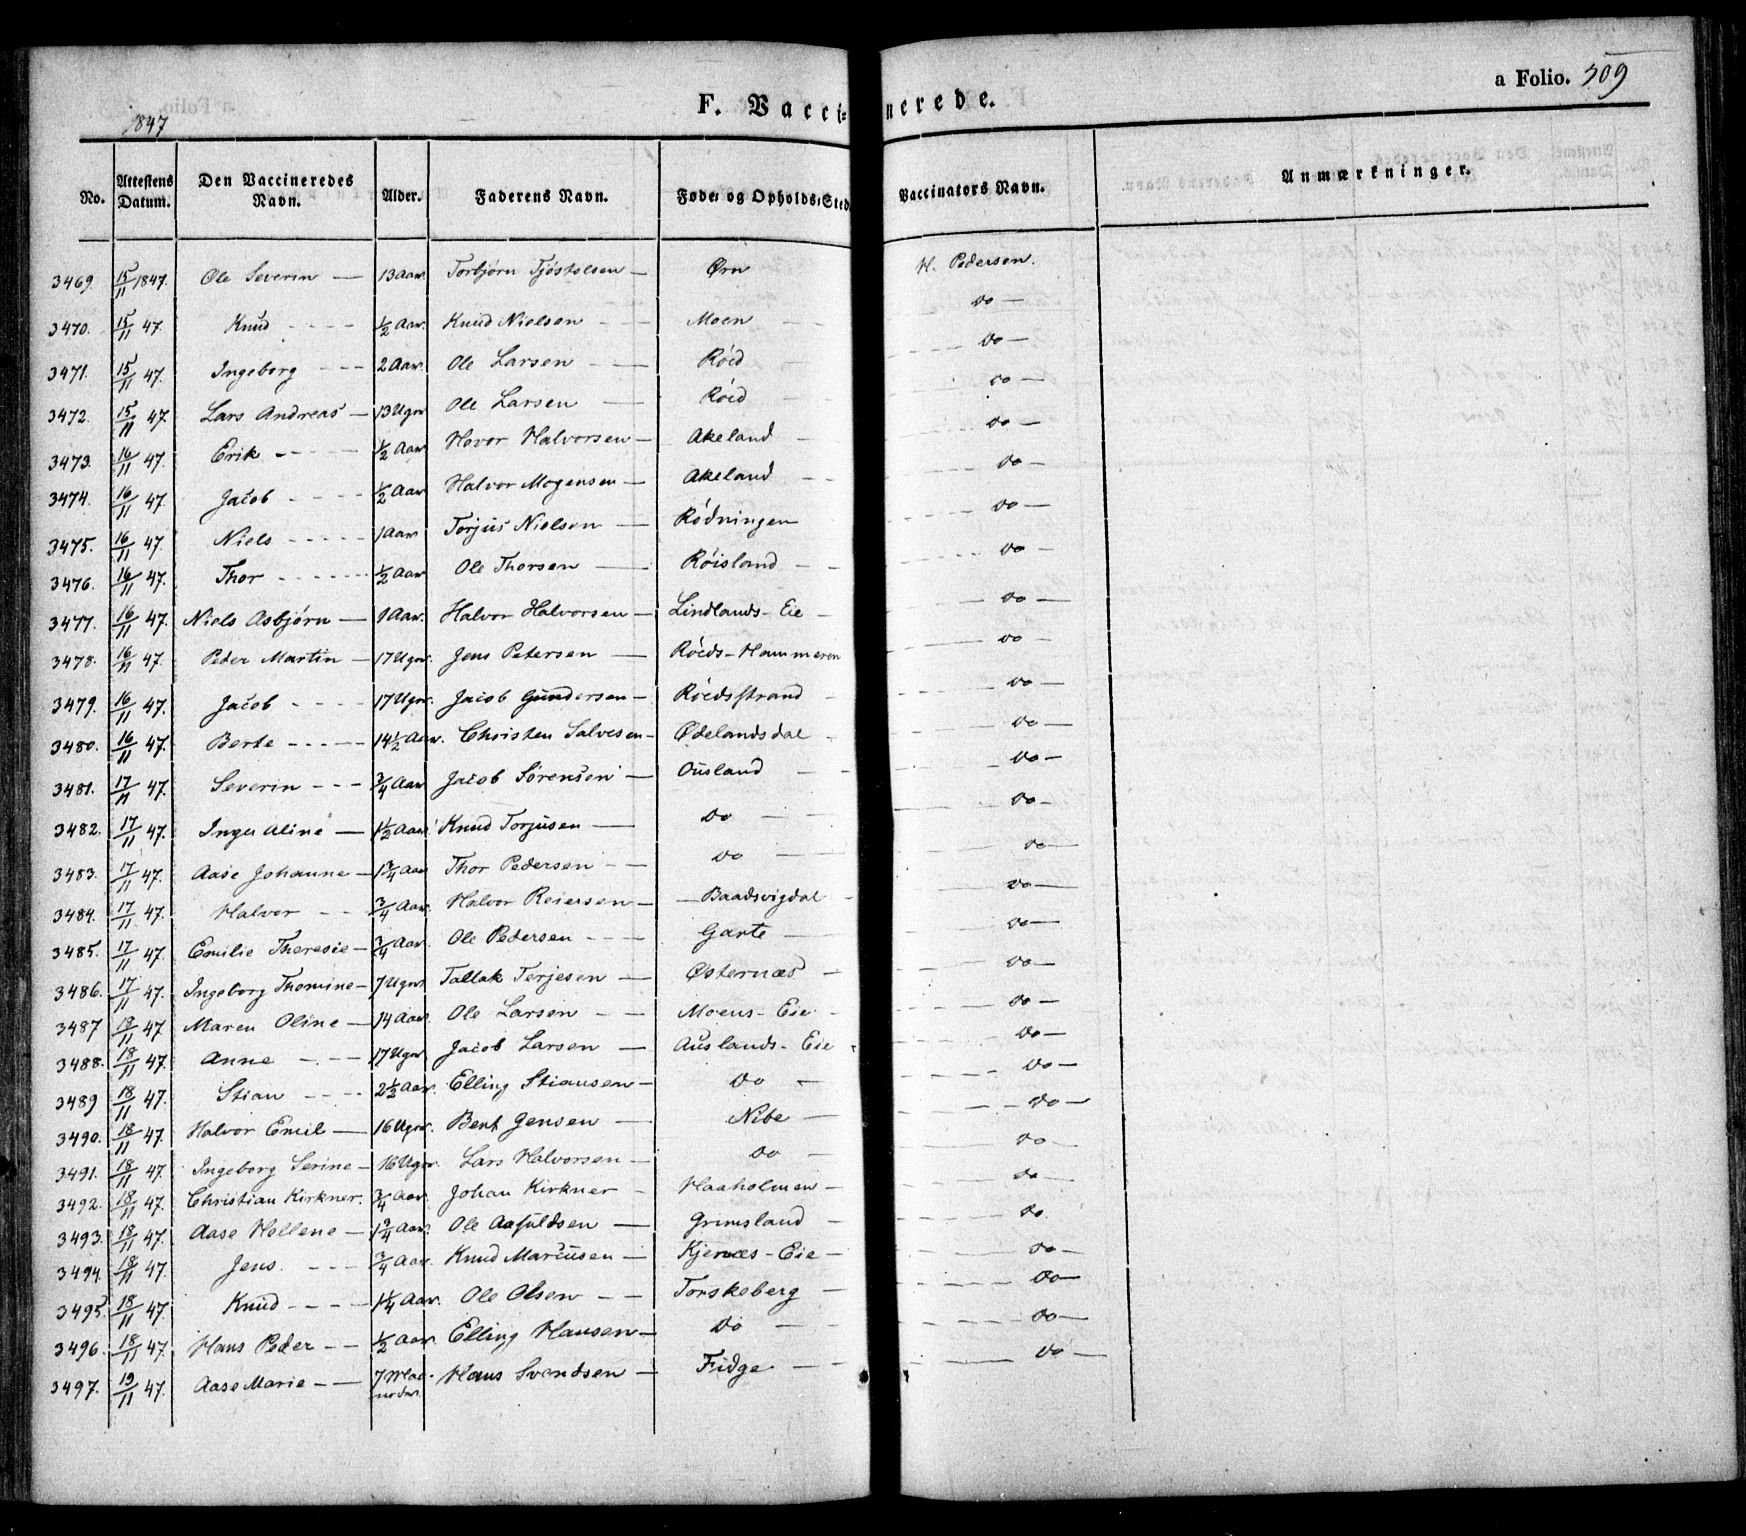 a Folio. 309
F. Vacci- nerede.
1847
No. Attestens Datum. Den Vaccineredes Navn. Alder. Faderens Navn. Føde- og Opholds-Sted. Vaccinators Navn. Anmærkninger.
3469. 15/11 1847. Ole Severin — 13 Aar. Torbjørn Tjöstolsen — Ørn H. Pedersen.
3470. 15/11 47. Knud - - - - 1/2 Aar. Knud Nielsen - - Moen - - do —
3471. 15/11 47. Ingeborg - - - 2 Aar. Ole Larsen — Röed - do —
3472. 15/11 47. Lars Andreas — 13 Ugr. Ole Larsen — Röed - do —
3473. 16/11 47. Erik - - - - 1/2 Aar. Hovor Halvorsen — Akeland - do —
3474. 16/11 47. Jacob - - - - 1/2 Aar Halvor Mogensen — Akeland - - do —
3475. 16/11 47. Niels - - - - - 1 Aar. Torjus Nielsen — Rödningen do —
3476. 16/11 47. Thor - - - - - 1/2 Aar Ole Thorsen — Röisland - - do —
3477. 16/11 47. Niels Asbjörn — 1 Aar. Halvor Halvorsen — Lindlands-Eie - do —
3478. 16/11 47. Peder Martin — 17 Ugr. Jens Petersen — Röeds-Hammeren do —
3479. 16/11 47. Jacob - - - - 17 Ugr. Jacob Gundersen — Röedsstrand - do —
3480. 16/11 47. Berte - - - - - 14 1/2 Aar. Christen Salvesen — Ødelandsdal - do —
3481. 17/11 47. Severin - - - 3/4 Aar Jacob Sörensen — Ousland - - do —
3482. 17/11 47. Inger Aline — 1 1/2 Aar Knud Torjusen — do - - do —
3483. 17/11 47. Aase Johanne — 1 3/4 Aar Thor Pedersen - - do - - do —
3484. 17/11 47. Halvor - - 3/4 Aar. Halvor Reiersen — Baadsvigdal - do —
3485. 17/11 47. Emilie Theresie — 3/4 Aar. Ole Pedersen - - - Garte — do —
3486. 17/11 47. Ingeborg Thomine — 7 Ugr. Tallak Terjesen — Østernæs - do —
3487 18/11 47. Maren Oline — 14 Aar. Ole Larsen - - Moens-Eie - do —
3488. 18/11 47. Anne - - - 17 Ugr Jacob Larsen — Auslands-Eie do —
3489 18/11 47. Stian - - - - 2 1/2 Aar. Elling Stiansen — do - do —
3490. 18/11 47. Halvor Emil — 16 Ugr. Bent Jensen — Nibe — do —
3491. 18/11 47. Ingeborg Serine — 16 Ugr. Lars Halvorsen — do - do —
3492. 18/11 47. Christian Kirkner. 3/4 Aar. Johan Kirkner - Haaholmen — do —
3493. 18/11 47. Aase Hellene — 1 3/4 Aar. Ole Aasuldsen — Grimsland - do.
3494. 18/11 47. Jens. - - - 3/4 Aar. Knud Marcusen — Kjernæs-Eie — do —
3495 18/11 47. Knud - - - - 1 1/4 Aar. Ole Olsen - - Torskeberg — do —
3496. 18/11 47. Hans Peder - - 1/2 Aar. Elling Hansen — do - - do —
3497. 19/11 47. Aase Marie - — 7 Maanedr. Hans Svendsen — Fidge - - do —